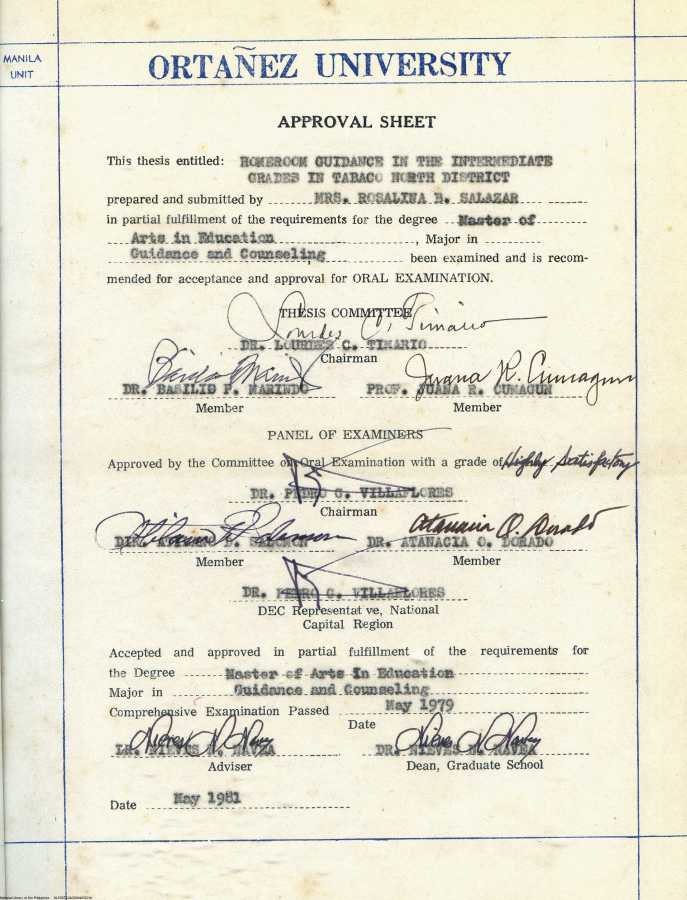 MANILA
UNIT
ORTAÑEZ UNIVERSITY
APPROVAL SHEET
This thesis entitled: HOMEROOM GUIDANCE IN THE INTERMEDIATE
GRADES IN TABACO NORTH DISTRICT
prepared and submitted by MRS. ROSALINA B. SALAZAR
in partial fulfillment of the requirements for the degree Master of
Arts in Education , Major in
Guidance and Counseling been examined and is recom-
mended for acceptance and approval for ORAL EXAMINATION.
THESIS COMMITTEE
Lourdes C. Timario
DR. LOURDES C. TIMARIO
Chairman
Juana R. Cumagun
DR. BASILIO P. MARINDO PROF. JUANA R. CUMAGUN
Member Member
PANEL OF EXAMINERS
Approved by the Committee on Oral Examination with a grade of Highly Satisfactory
DR. PEDRO G. VILLAFLORES
Chairman
Atanacia O. Dorado
DR. ATANACIA O. DORADO
Member Member
DR. PEDRO G. VILLAFLORES
DEC Representat ve, National
Capital Region
Accepted and approved in partial fulfillment of the requirements for
the Degree Master of Arts In Education
Major in Guidance and Counseling
Comprehensive Examination Passed May 1979
Date
DR. NIEVES
Adviser Dean, Graduate School
Date May 1981